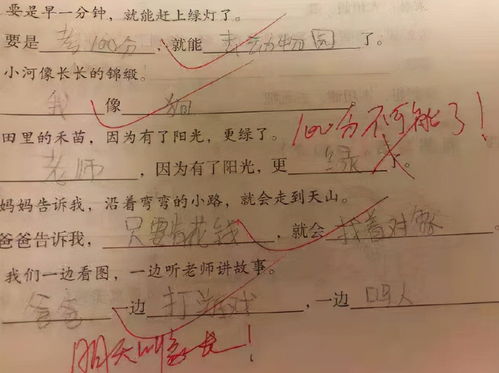 要是早一分钟，就能赶上绿灯了。
要是考100分，就能去动物园了。
小河像长长的锦缎。
我像
100分不可能了！
田里的禾苗，因为有了阳光，更绿了。
老师，因为有了阳光，更绿了。
妈妈告诉我，沿着弯弯的小路，就会走到天山。
爸爸告诉我，只要肯花钱，就会找着对象
我们一边看图，一边听老师讲故事。
爸爸一边打游戏，一边骂人
明天叫家长！